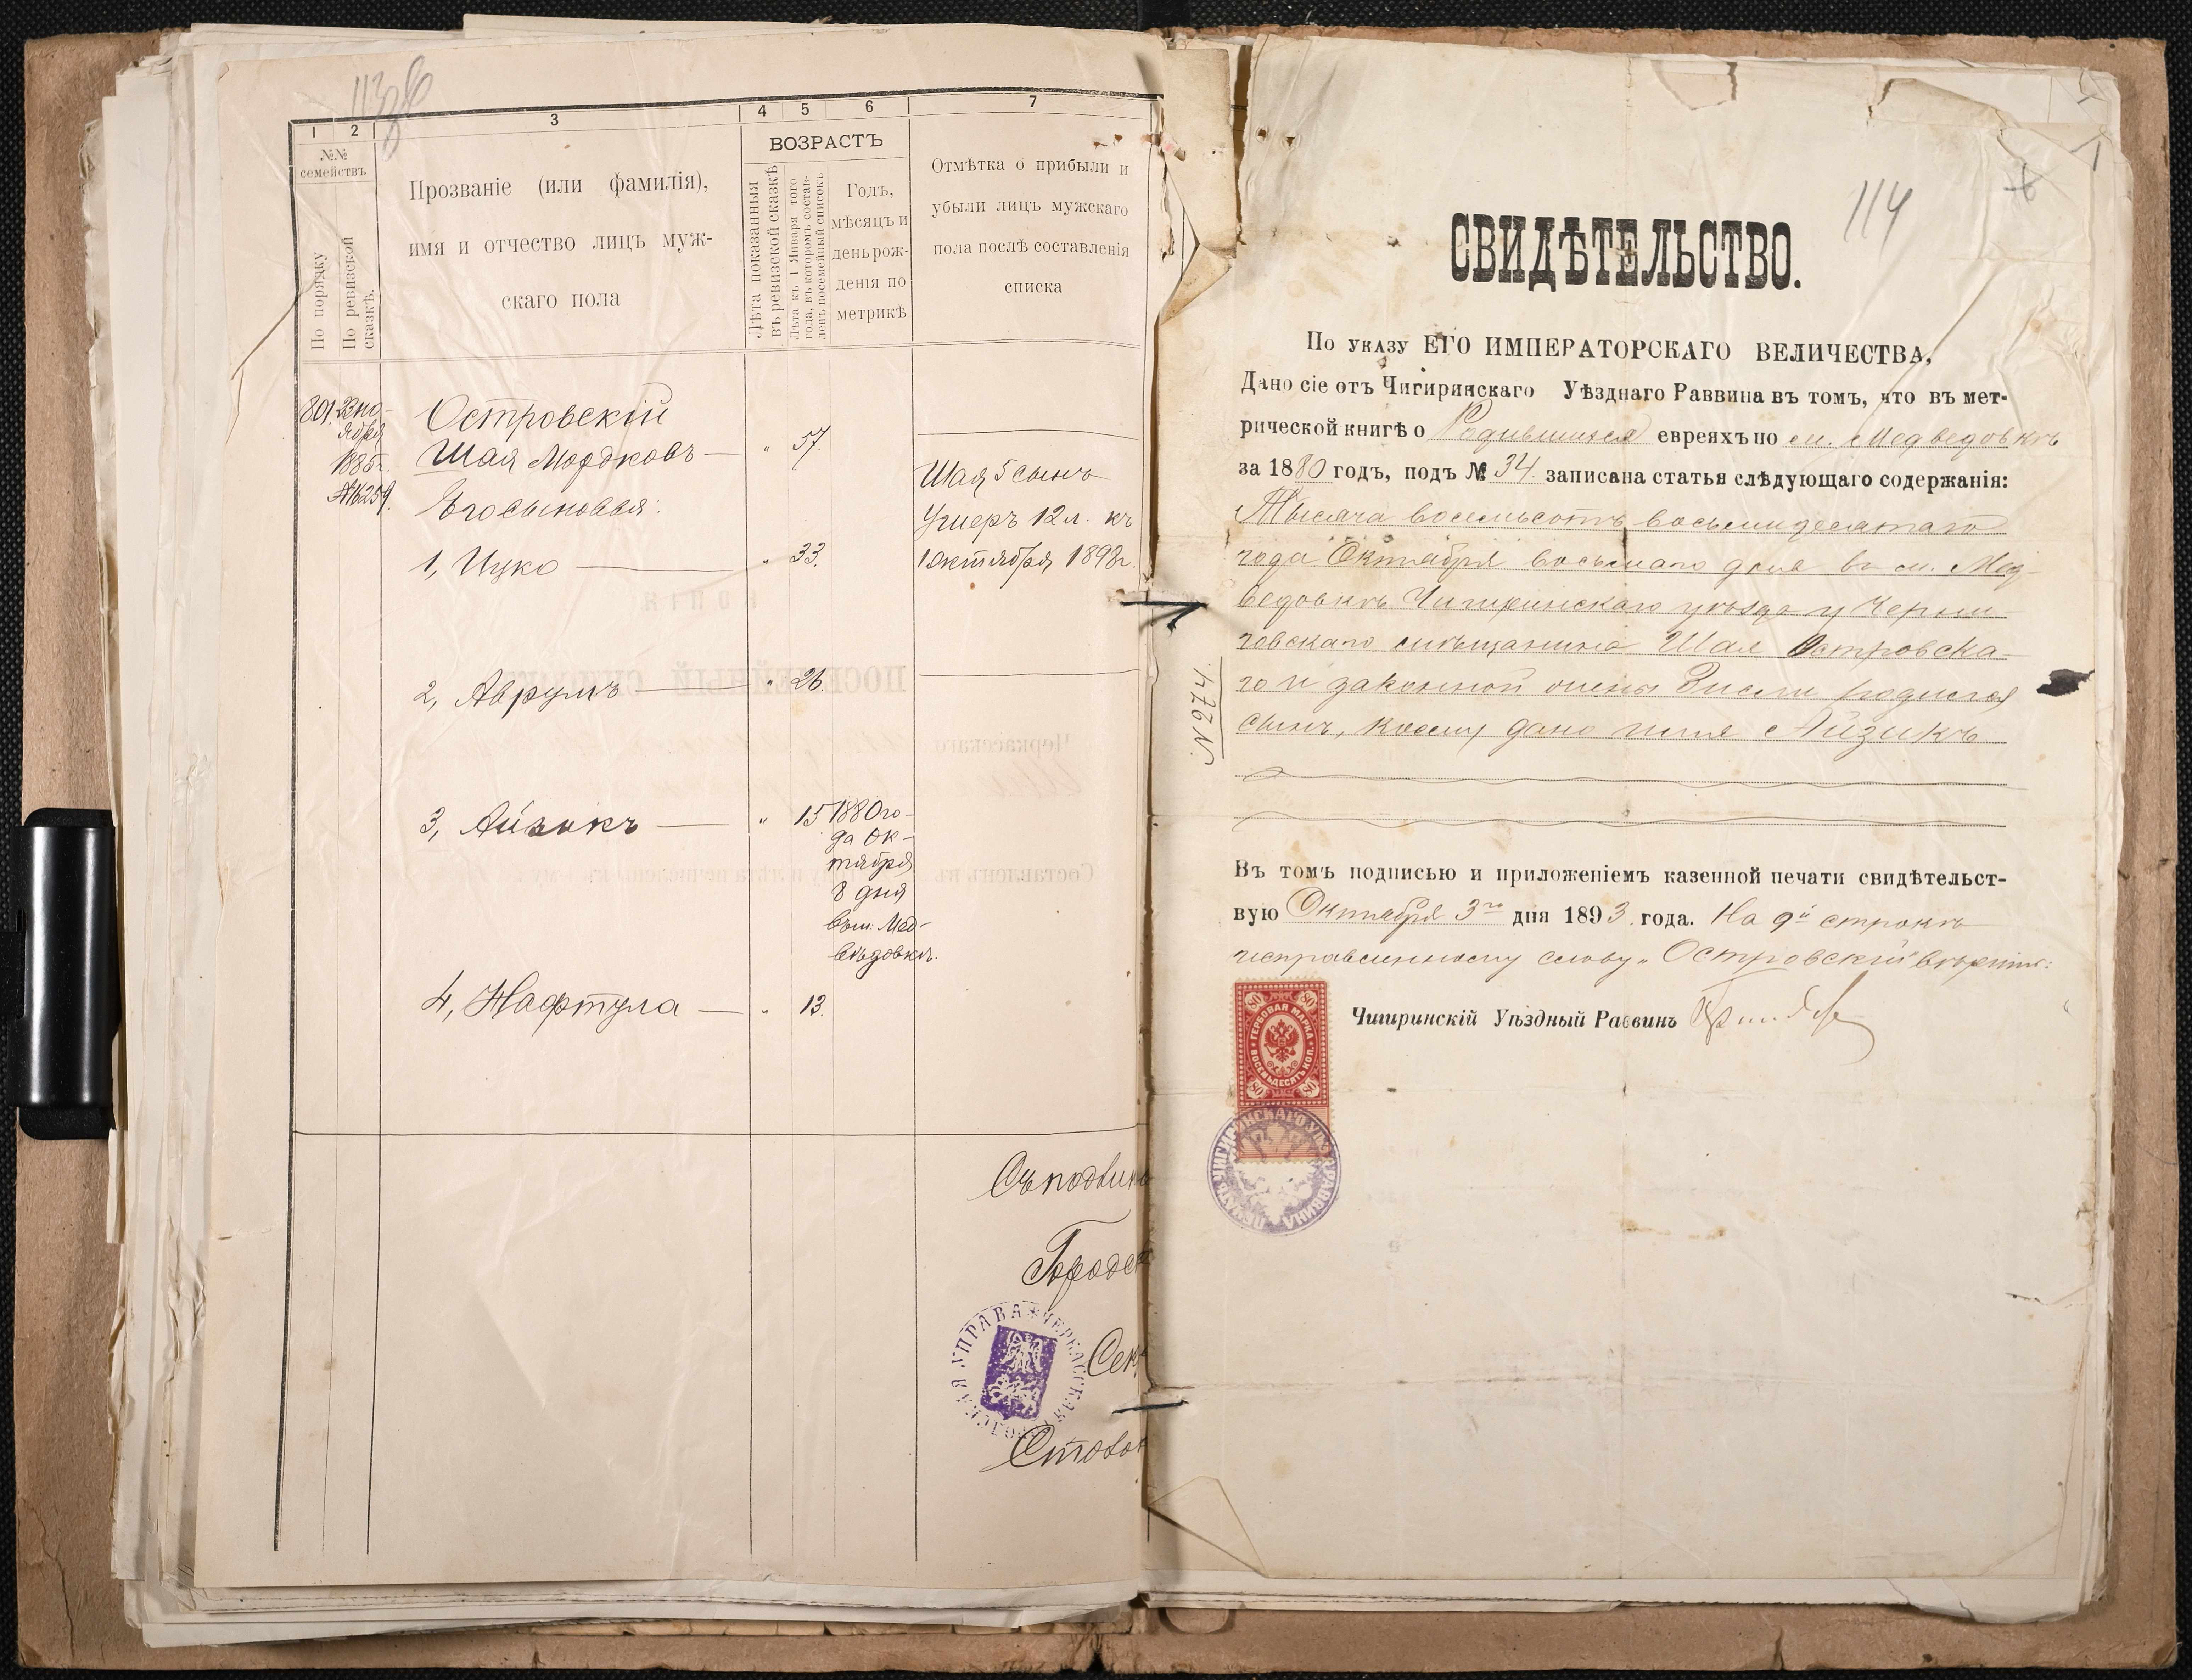 113об
1 2 3 4 5 6 7
№№ семействъ
По порядку
По ревизской сказкѣ.
Прозваніе (или фамилія),
имя и отчество лицъ муж-
скаго пола
ВОЗРАСТЪ
Лѣта показанныя въ ревизской сказкѣ
Лѣта къ 1 Января того года, въ которомъ составленъ посемейный списокъ
Годъ,
мѣсяцъ и
день рож-
денія по
метрикѣ
Отмѣтка о прибыли и
убыли лицъ мужскаго
пола послѣ составленія
списка
801. 23 но-
ября
1885г.
№16259.
Островскій
Шая Мордковъ — " 57.
Его сыновья:
1, Ицко — " 33.
Шая 5 сынъ
Умеръ 12 л. къ
1 октября 1898г.
2, Аврумъ — " 26.
3, Айзикъ — " 15 1880 го-
да Ок-
тября
8 дня
въ м. Мед-
вѣдовкѣ.
4, Нафтула — " 13.
Съ подлин
Городск
Сек
ЧЕРКАССКАЯ ГОРОДСКАЯ УПРАВА
114
СВИДѢТЕЛЬСТВО.
По указу ЕГО ИМПЕРАТОРСКАГО ВЕЛИЧЕСТВА,
Дано сіе отъ Чигиринскаго Уѣзднаго Раввина въ томъ, что въ мет-
рической книгѣ о Родившихся евреяхъ по м. Медведовкѣ
за 1880 годъ, подъ № 34 записана статья слѣдующаго содержанія:
Тысяча восемьсотъ восьмидесятаго
года Октября восьмаго дня въ м. Мед-
ведовкѣ Чигиринскаго уѣзда у Черни-
говскаго мѣщанина Шая Островска-
го и законной жены родился
сынъ, коему дано имя Айзикъ
N 274.
Въ томъ подписью и приложеніемъ казенной печати свидѣтельст-
вую Октября 3го дня 1893 года. На 9й строкѣ
исправленному слову „Островскій" вѣрить:
Чигиринскій Уѣздный Раввинъ
80 80
ГЕРБОВАЯ МАРКА
ВОСЕМЬДЕСЯТЪ КОП.
80 80
ПЕЧАТЬ ЧИГИРИНСКАГО УѢЗ. РАВВИНА